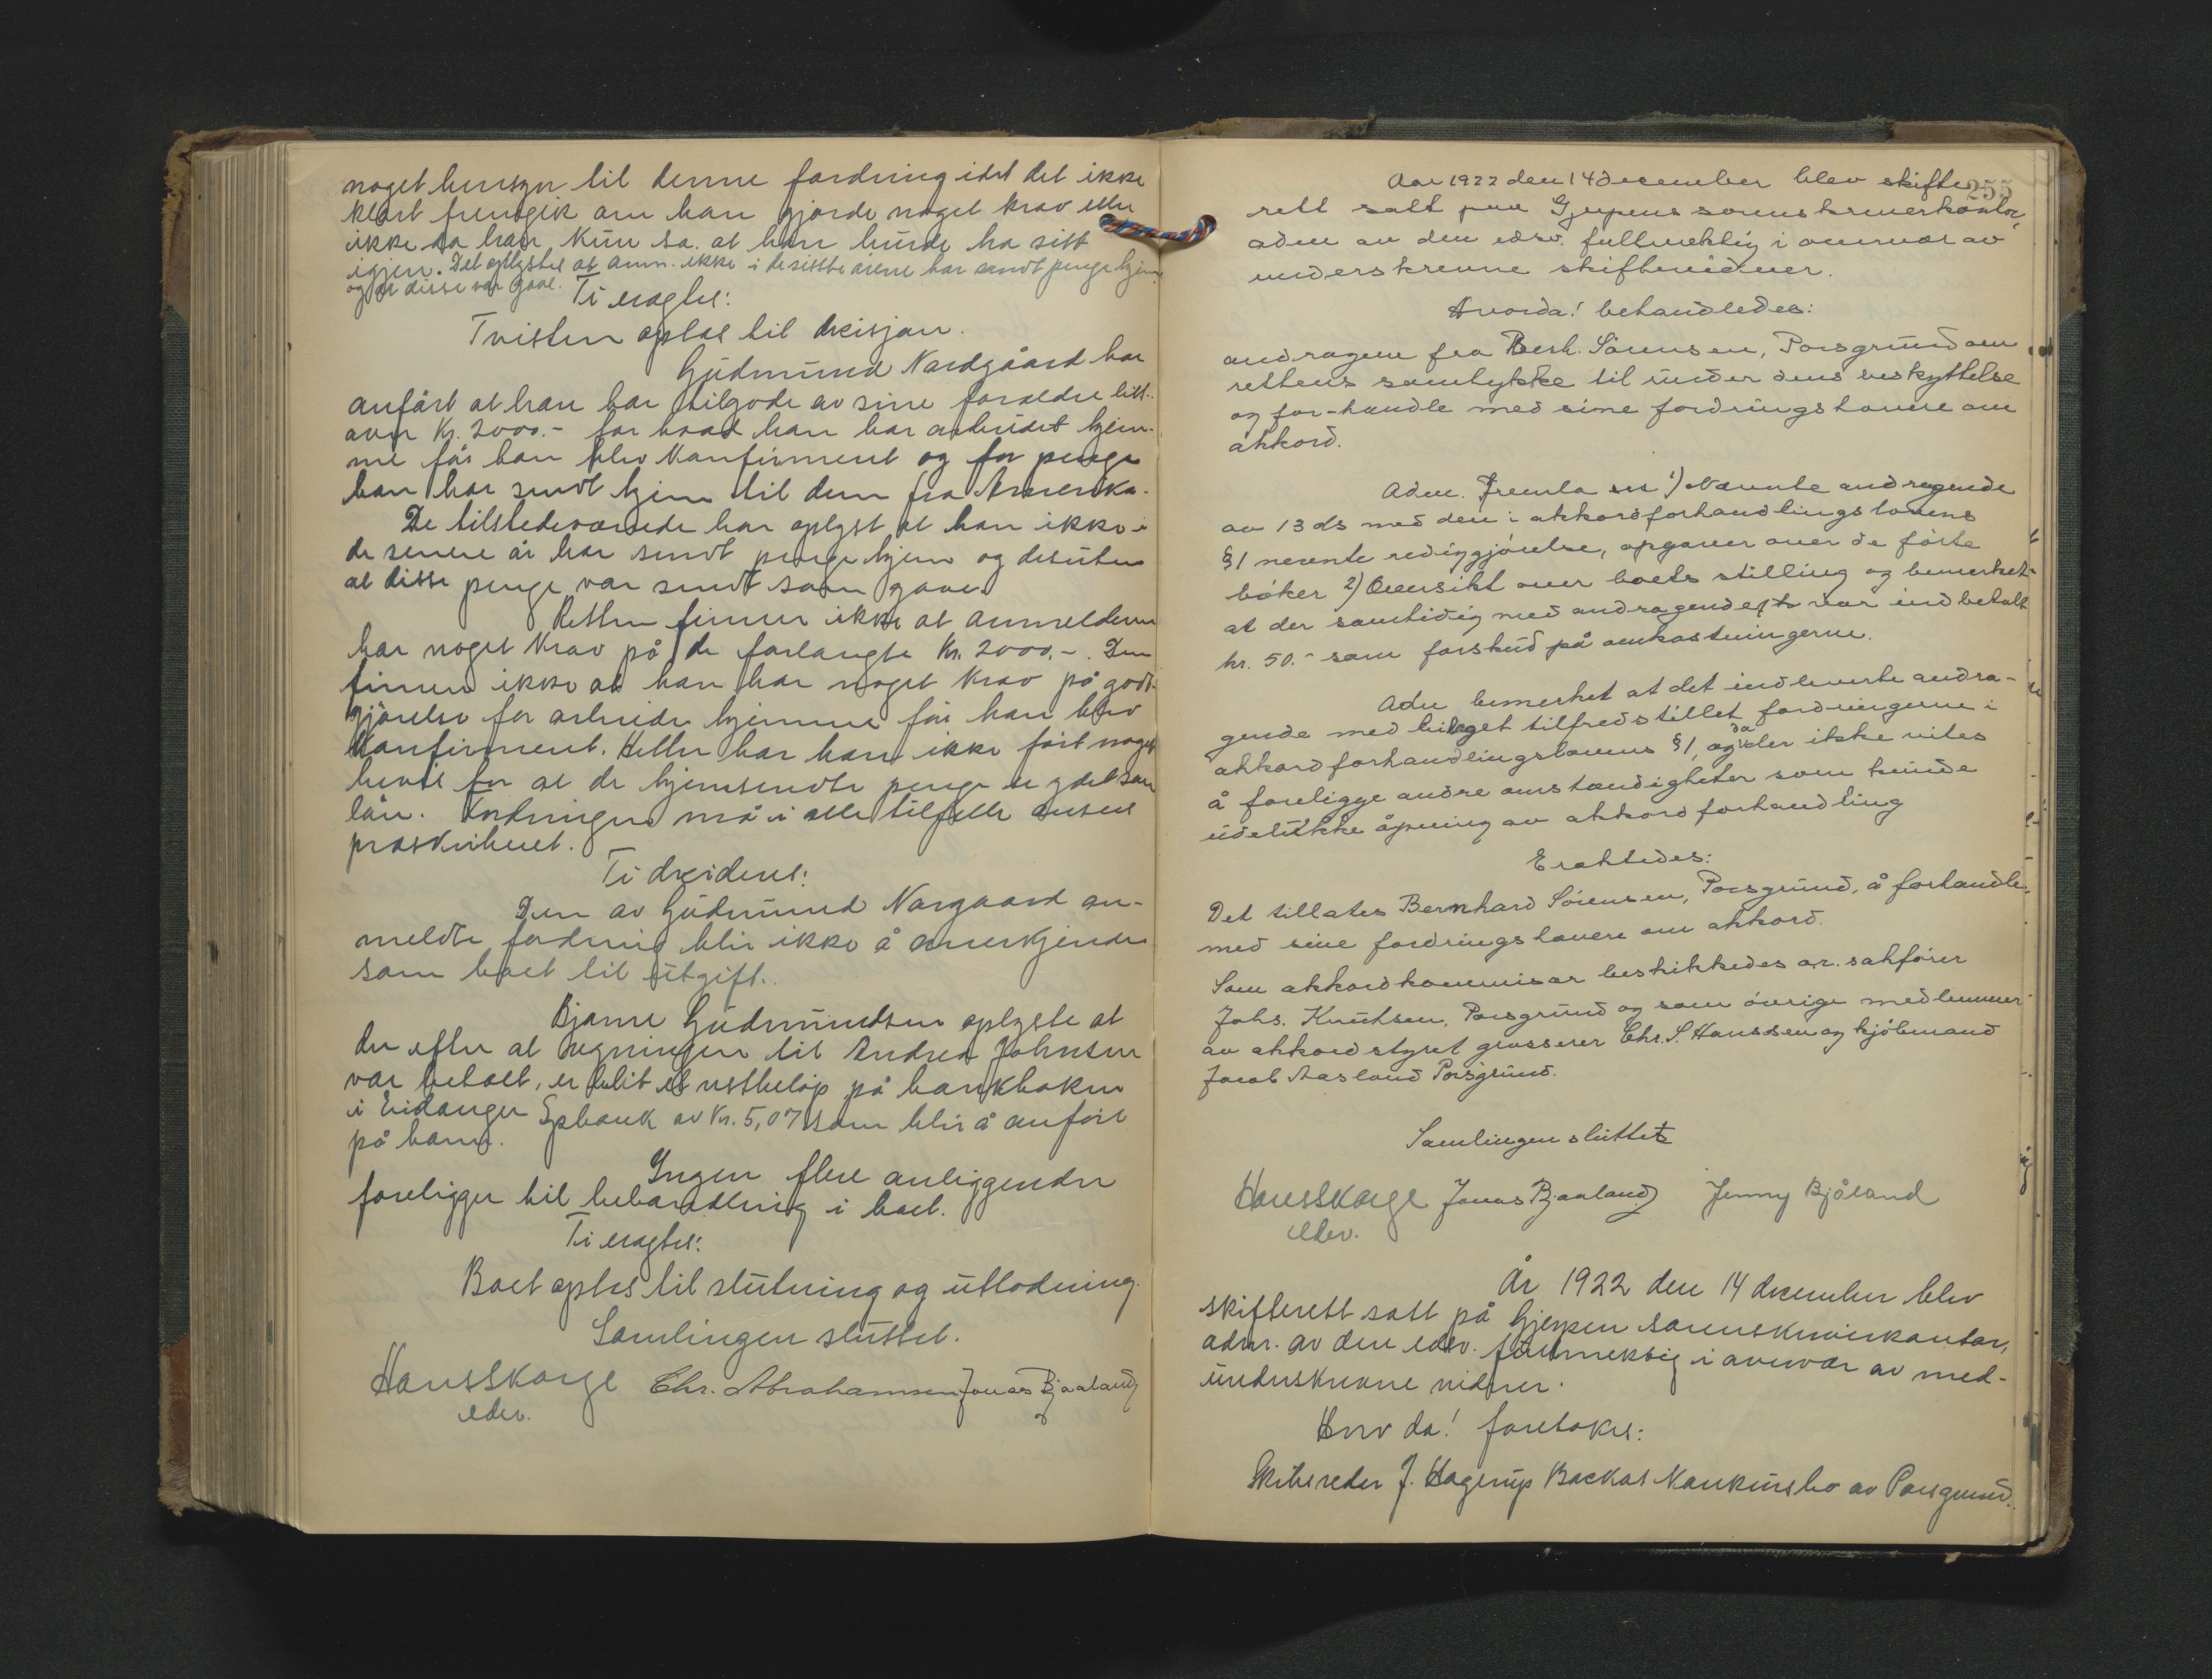 noget hensyn til denne fordring idet det ikke
klart fremgik om han gjorde noget krav eller
ikke da han kun sa at han burde ha sitt
igjen. Det oplystes at anm. ikke i de sisste årene har sendt penge hjem
og at disse var gave.
Ti eragtes:
Tvisten optas til decisjon.
Gudmund Nordgåard har
anført at han har tilgode av sine foreldre litt
over Kr. 2000.- for hvad han har arbeidet hjem-
me før han blev Konfirmert og for penge
han har sendt hjem til dem fra Amerika.
De tilstedeværende har oplyst at han ikke i
de senere år har sendt penge hjem og desuten
at disse penge var sendt som gave.
Retten finner ikke at anmelderen
har noget krav på de forlangte Kr. 2000,-. Den
finner ikke at han har noget krav på godt-
gjørelse for arbeide hjemme før han blev
Konfirmert. Heller har han ikke ført noget
bevis for at de hjemsendte penge er ydet som
lån. Fordringen må i alle tilfelle ansees
preskribert.
Ti decideres:
Den av Gudmund Norgaard an-
meldte fordring blir ikke å anerkjende
som boet til utgift.
Bjarne Gudmundsen oplyste at
der efter at regningen til Andrea Johnsen
var betalt, er blit et restbeløp på bankboken
i Eidanger Spbank av Kr. 5,07 som blir å anføre
på ham.
Ingen flere anliggender
foreligger til behandling i boet.
Ti eragtes:
Boet optas til slutning og utlodning.
Samlingen sluttet.
Hans Skorge Chr. Abrahamsen Jonas Bjaaland
edsv.
255
Aar 1922 den 14 december blev skifte-
rett satt paa Gjerpens sorenskriverkontor,
adm av den edsv. fullmektig i overvær av
underskrevne skiftevidner.
Hvorda! behandledes:
andragene fra Bernh. Sørensen, Porsgrund om
rettens samtykke til under dens beskyttelse
og for-handle med sine fordringshavere om
akkord.
Adm. fremla 1) Nævnte andragende
av 13 ds med den i akkordforhandlingslovens
§1 nevnte redegjørelse, opgaver over de førte
bøker 2) Oversikt over boets stilling og bemerket
at der samtidig med andragendet var indbetalt
kr. 50.- som forskud på omkostningerne.
Adm bemerket at det indleverte andra-
gende med bilaget tilfredsstillet fordringerne i
akkordforhandlingslovens §1, og da der ikke vites
å foreligge andre omstændigheter som kunde
udelukke åpning av akkordforhandling
Eraktedes:
Det tillates Bernhard Sørensen, Porsgrund, å forhandle
med sine fordringshavere om akkord.
Som akkordkommisær beskikkedes o.r. sakfører
Johs. Knutsen, Porsgrund og som øvrige medlemmer
av akkordstyret grosserer Chr. S. Hanssen og kjøbmand
Jacob Aasland Porsgrund.
Samlingen sluttet
Hans Skorge Jonas Bjaaland Jenny Bjåland
edsv.
År 1922 den 14 december blev
skifterett satt på Gjerpen sorenskriverkontor,
adm. av den edsv. fullmektig i overvær av med-
underskrevne vidner.
Hvor da! foretokes:
Skibsreder J. Hagerup Backas Konkursbo av Porsgrund.